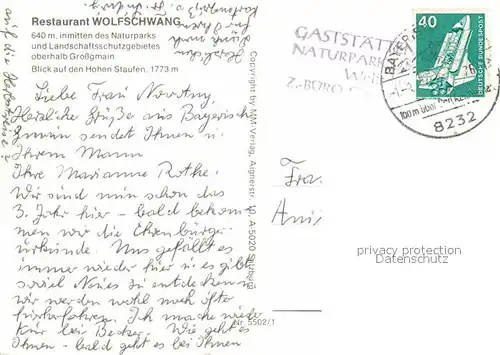 Restaurant WOLFSCHWANG
640 m, inmitten des Naturparks
und Landschaftsschutzgebietes
oberhalb Großgmain
Blick auf den Hohen Staufen, 1773 m
Liebe Frau
Herzliche Grüße aus Bayerisch
Gmain sendet Ihnen u.
Ihrem Mann
Ihre Marianne Rothe.
Wir sind nun schon das
3. Jahr hier – bald bekom
men wir die Ehrenbürger
urkunde. Uns gefällt es
immer wieder hier u. es gibt
soviel Neues zu entdecken
wir werden wohl noch öfter
hierherfahren. Ich mache wieder
Kur bei Becker. Wie geht es
Ihnen – bald geht es bei Ihnen
auf die
Copyright by WM-Verlag, Aignerstr. 10, A-5020 Salzburg
Nr. 5502/1
GASTSTÄTTE
NATURPARK
Z.-BÜRO
40
DEUTSCHE BUNDESPOST
8232
Frau
privacy protection
Datenschutz